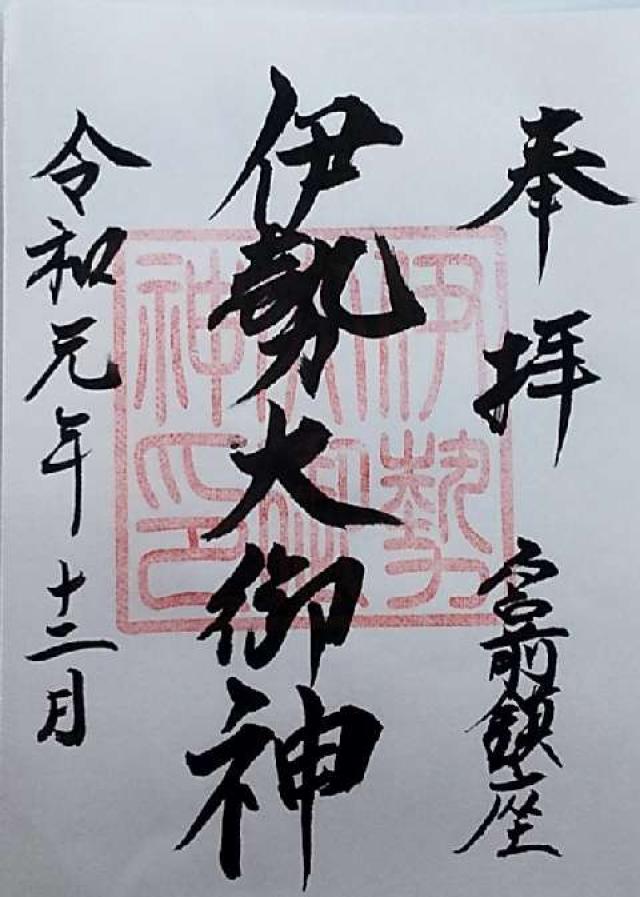 奉拝
宮前鎮座
伊勢大御神
伊勢大御神印
令和元年十二月